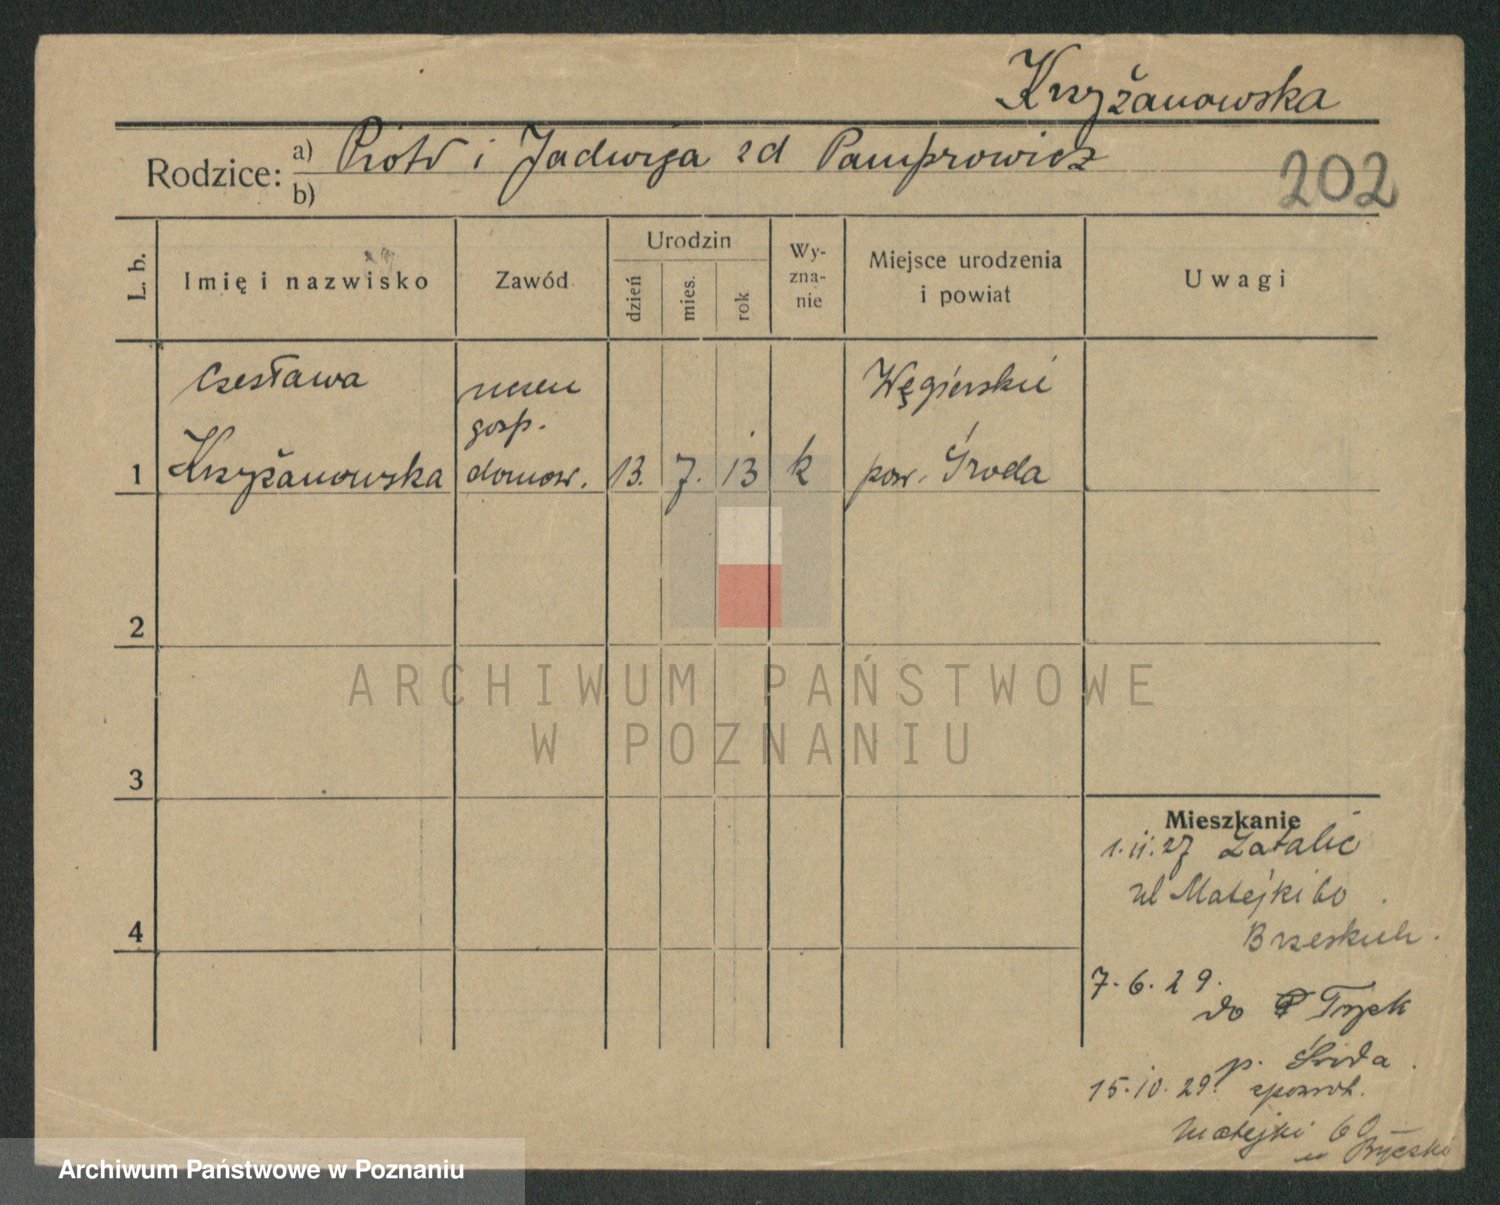 Krzyżanowska
Rodzice: a) Piotr i Jadwiga zd Pamprowicz
b)
202
L. b.
Imię i nazwisko
Zawód
Urodzin
dzień
mies.
rok
Wy-
zna-
nie
Miejsce urodzenia
i powiat
Uwagi
Czesława
Krzyżanowska
uczen
gosp.
domow.
13. 7. 13
k
Węgierskie
pow. Środa
1
2
3
4
ARCHIWUM PAŃSTWOWE
W POZNANIU
Mieszkanie
1.11.27
ul Matejki 60
7.6.29.
do
p. Środa.
15.10.29.
Matejki 60
Archiwum Państwowe w Poznaniu